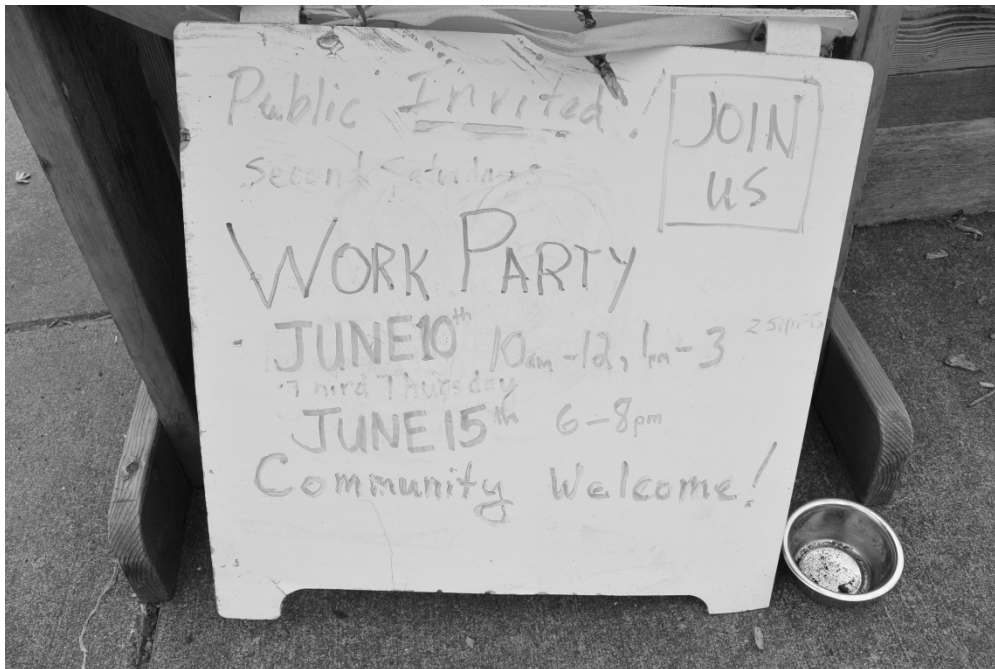 Public Invited!
JOIN
US
Second Saturdays
WORK PARTY
JUNE 10th 10am-12, 1pm-3 2 SHIFTS
Third Thursday
JUNE 15th 6-8pm
Community Welcome!